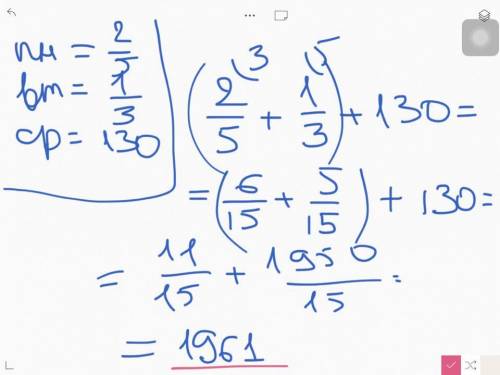 пн = 2/5
вт = 1/3
ср = 130
(2/5 ³ + 1/3 ⁵) + 130 =
= (6/15 + 5/15) + 130 =
= 11/15 + 1950/15 =
= 1961